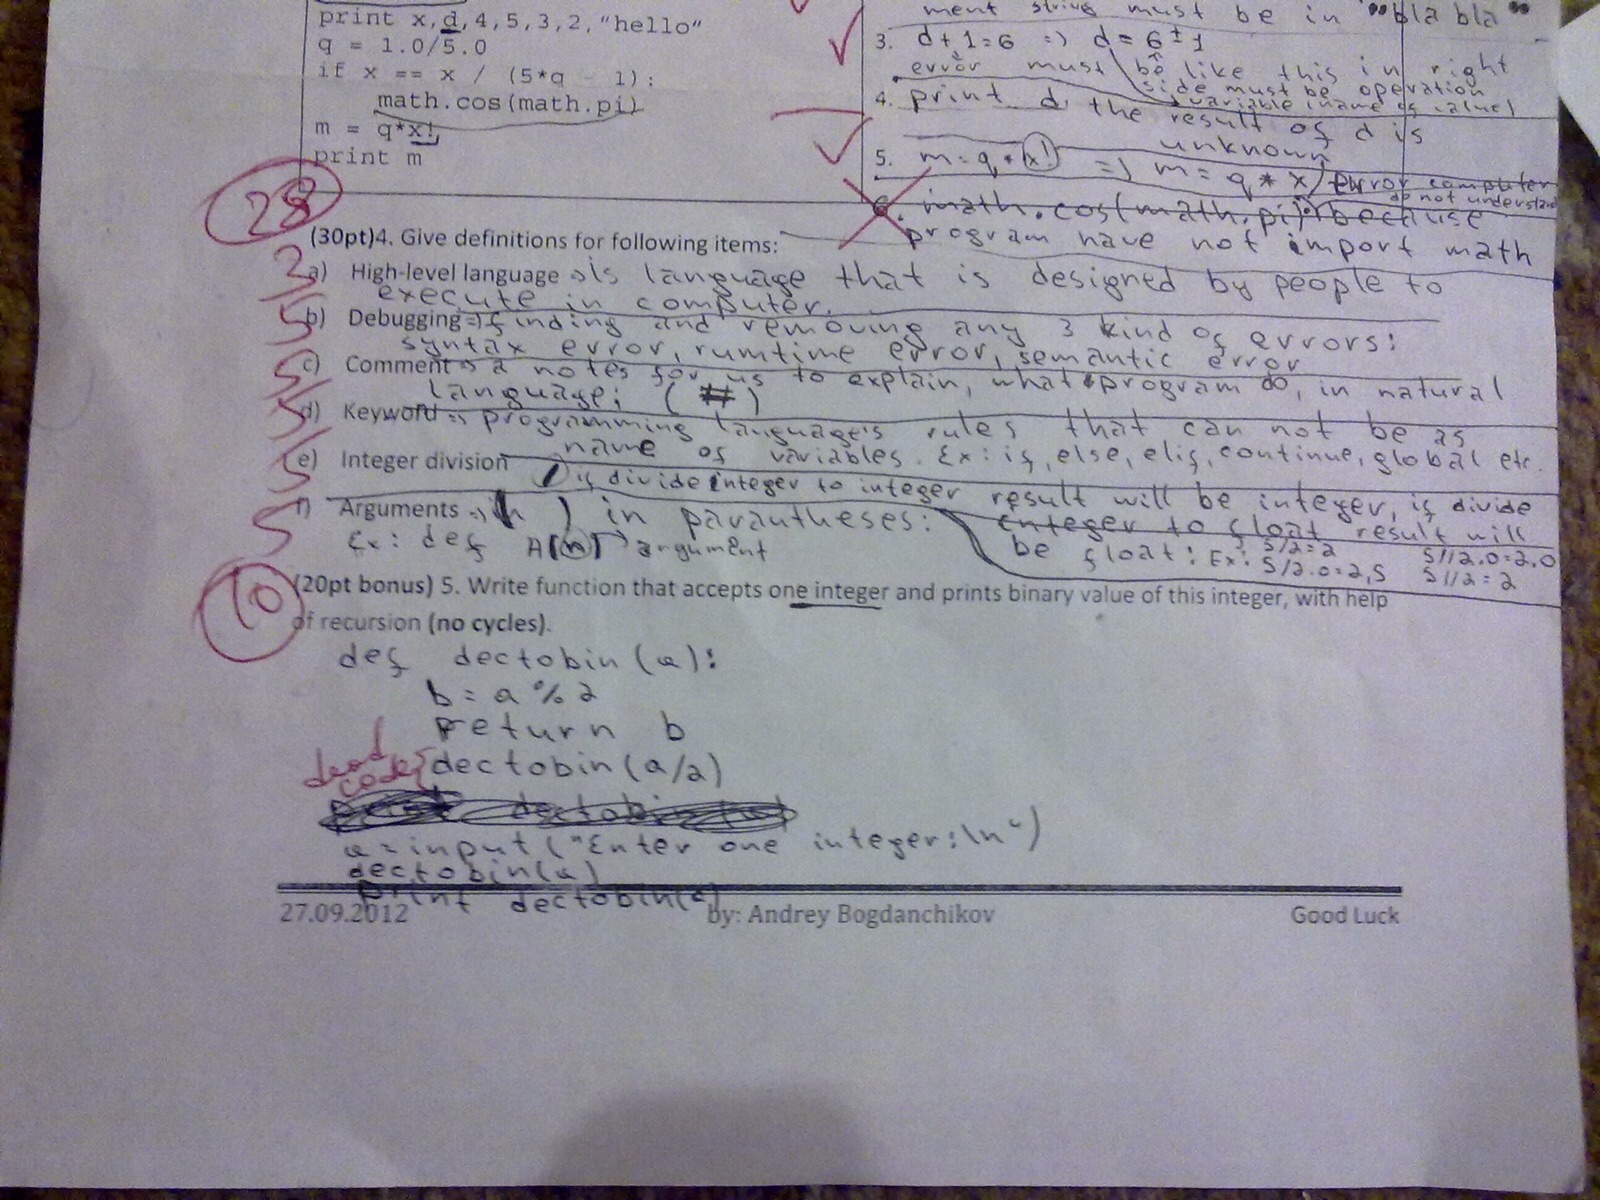 print x,d,4,5,3,2,"hello"
q = 1.0/5.0
if x == x / (5*q - 1):
math.cos(math.pi)
m = q*x!
print m
ment string must be in "bla bla"
3. d+1=6 => d = 6±1
error must be like this in right
side must be operation
variable (name of value)
4. print d, the result of d is
unknown
5. m = q * (x!) => m = q * x, error computer
do not understand
6. math.cos(math.pi) because
program have not import math
28
(30pt)4. Give definitions for following items:
3 a) High-level language => Is language that is designed by people to
execute in computer.
5 b) Debugging => finding and removing any 3 kind of errors:
syntax error, rumtime error, semantic error
5 c) Comment => a notes for us to explain, what program do, in natural
language; (#)
5 d) Keyword => programming language's rules that can not be as
name of variables. Ex: if, else, elif, continue, global etc.
5 e) Integer division if divide integer to integer result will be integer, if divide
integer to float result will
be float: Ex: 5/2=2 5//2.0=2.0
5/2.0=2,5 5//2=2
5 f) Arguments => in parantheses:
Ex: def A(n) argument
10
(20pt bonus) 5. Write function that accepts one integer and prints binary value of this integer, with help
of recursion (no cycles).
def dectobin(a):
b = a % 2
return b
dead code { dectobin(a/2)
a = input("Enter one integer:\n")
dectobin(a)
print dectobin(a)
27.09.2012 by: Andrey Bogdanchikov Good Luck